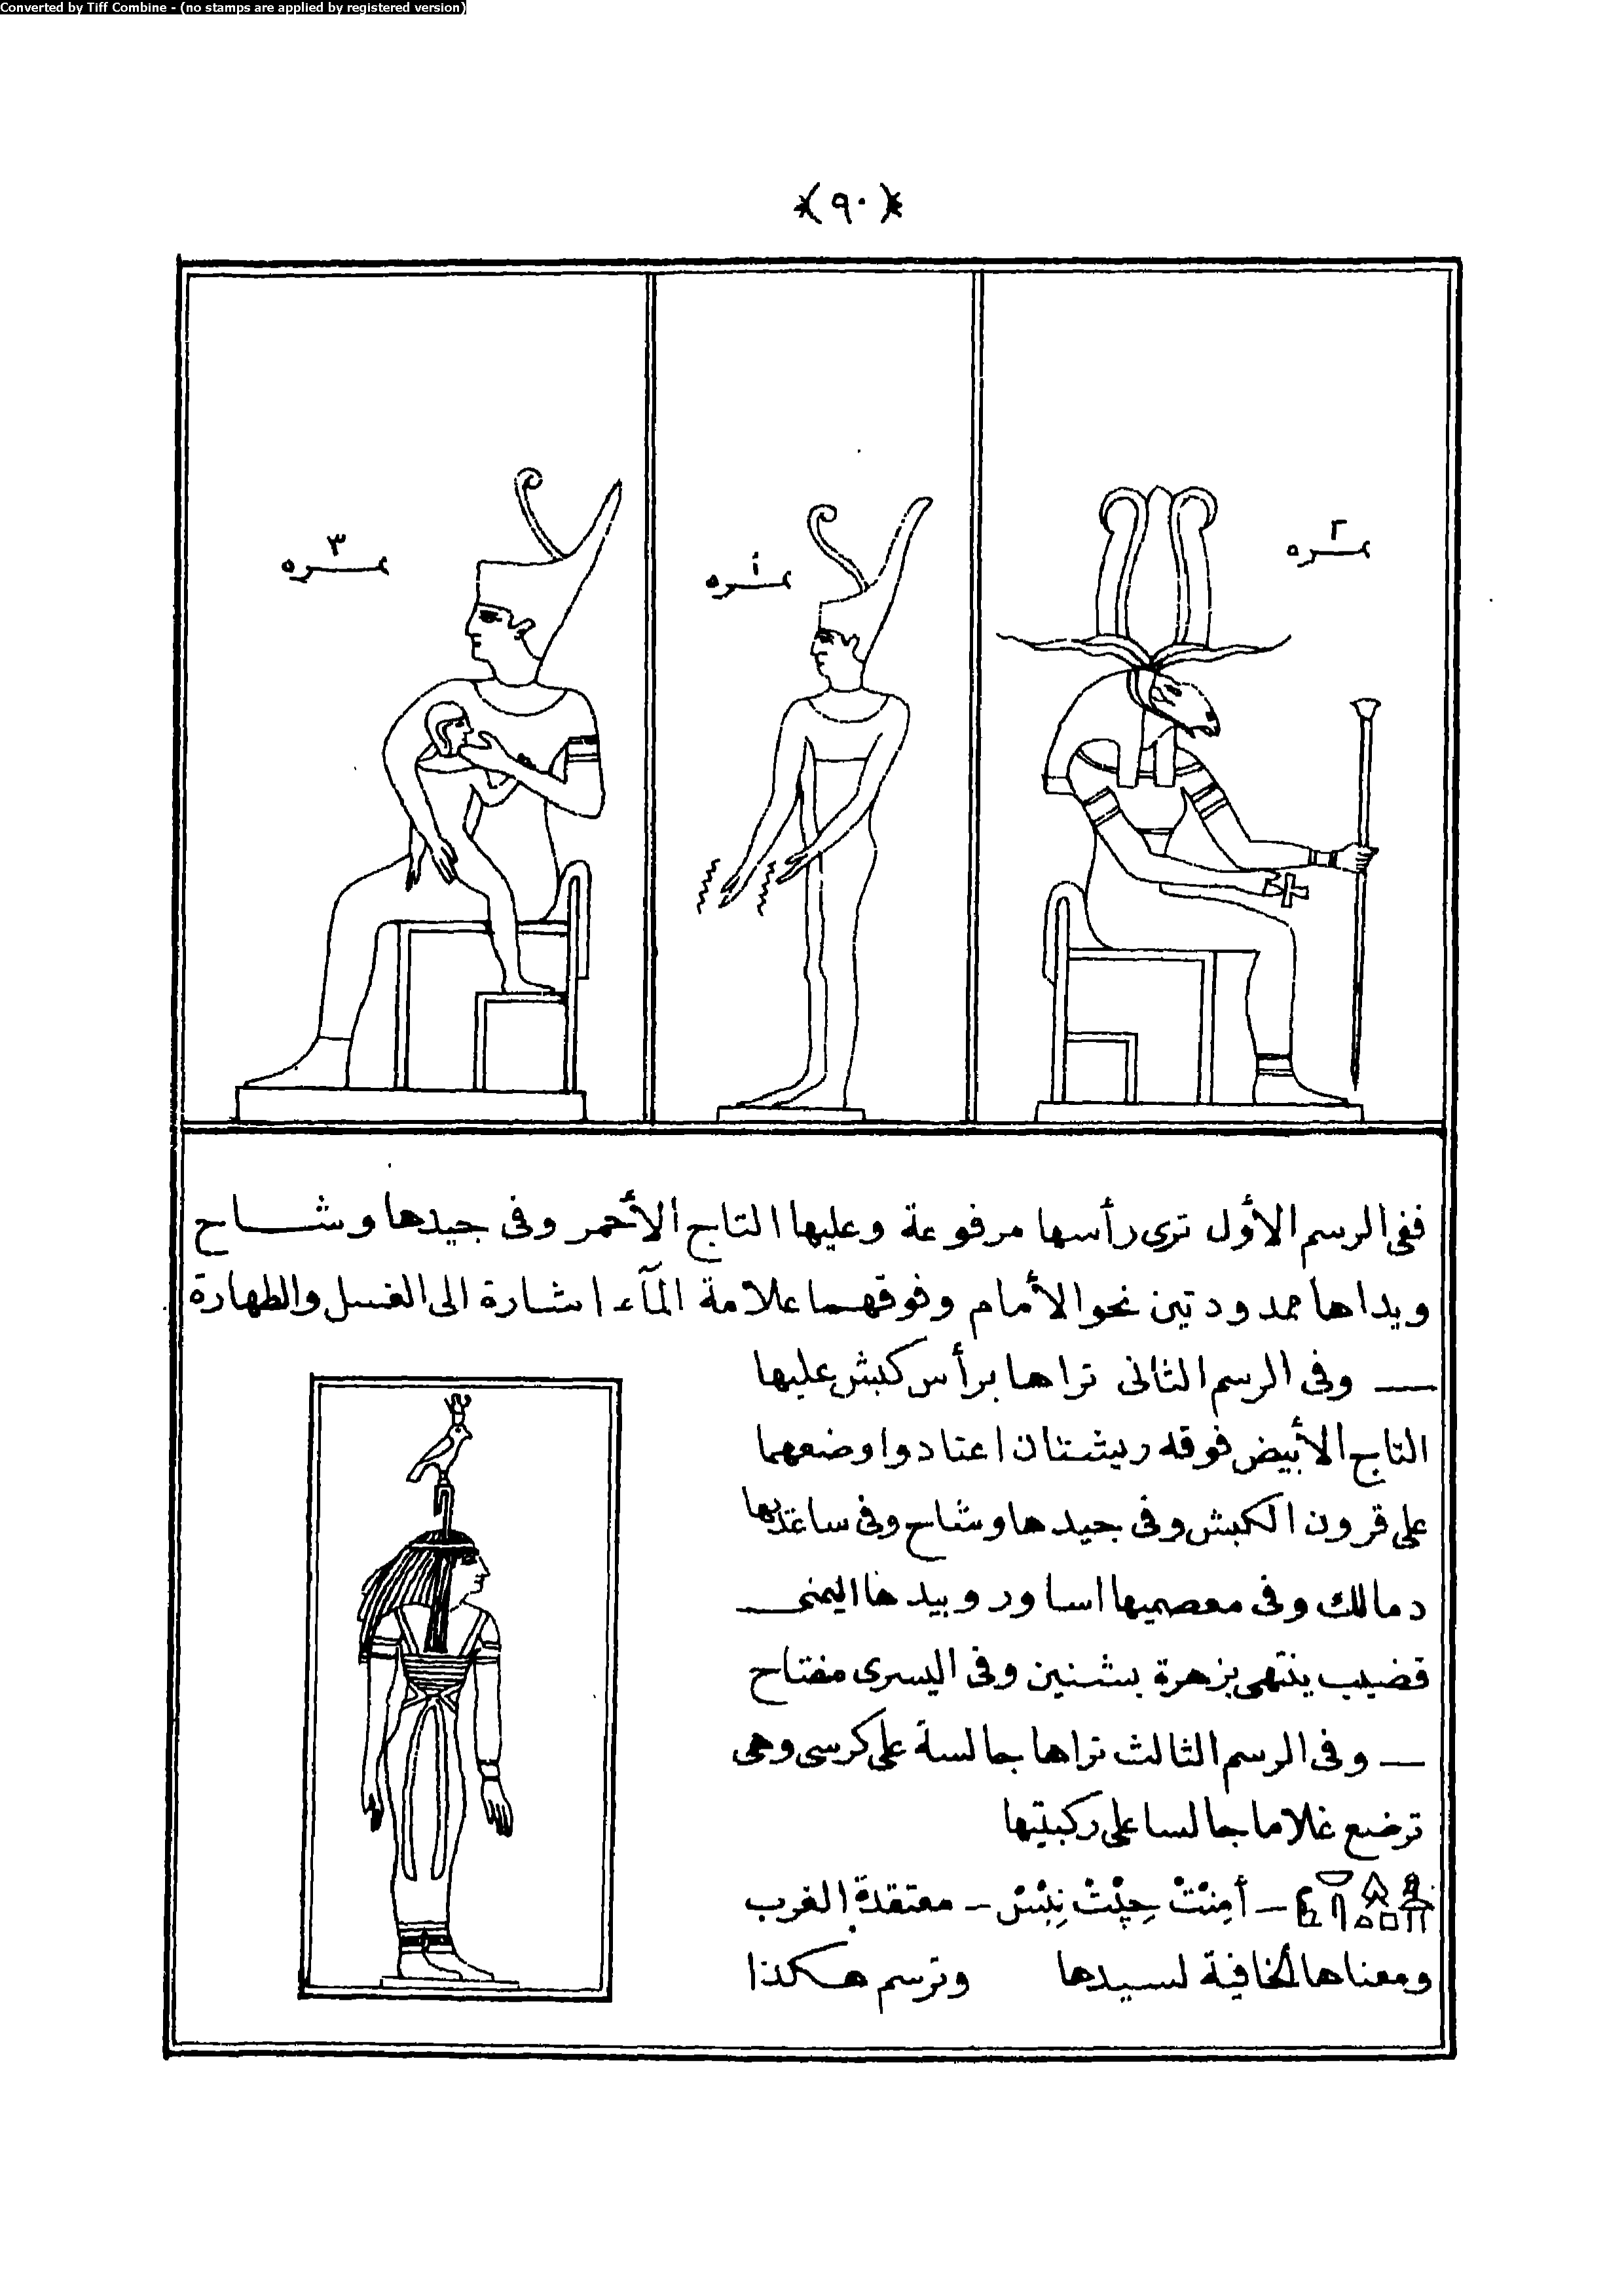 Converted by Tiff Combine - (no stamps are applied by registered version)
﴿٩٠﴾
نمره ٢
نمره ١
نمره ٣
ففى الرسم الأول ترى رأسها مرفوعة وعليها التاج الأحمر وفى جيدها وشاح
ويداها ممدودتين نحو الأمام وفوقهما علامة المآء اشارة الى الغسل والطهارة
— وفى الرسم الثانى تراها برأس كبش عليها
التاج الأبيض فوقه ريشتان اعتادوا وضعهما
على قرون الكبش وفى جيدها وشاح وفى ساعديها
دمالك وفى معصميها اساور وبيدها اليمنى
قضيب ينتهى بزهرة بشنين وفى اليسرى مفتاح
— وفى الرسم الثالث تراها جالسة على كرسى وهى
ترضع غلاما جالسا على ركبتيها
— أمِنْتْ حِپْتْ نِبْسْ — معتقدة الغرب
ومعناها الخافية لسيدها وترسم هكذا